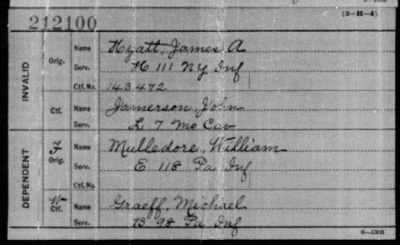 (3-H-4)
212100
INVALID
Orig. Name Hyatt, James A
Serv. H 111 NY Inf
Ctf. No. 143,472
Ctf. Name Jamerson, John
Serv. L 7 Mo Cav
DEPENDENT
F Orig. Name Mulledore, William
Serv. E 118 Pa Inf
W Ctf. Name Graeff, Michael
Serv. B 98 Pa Inf